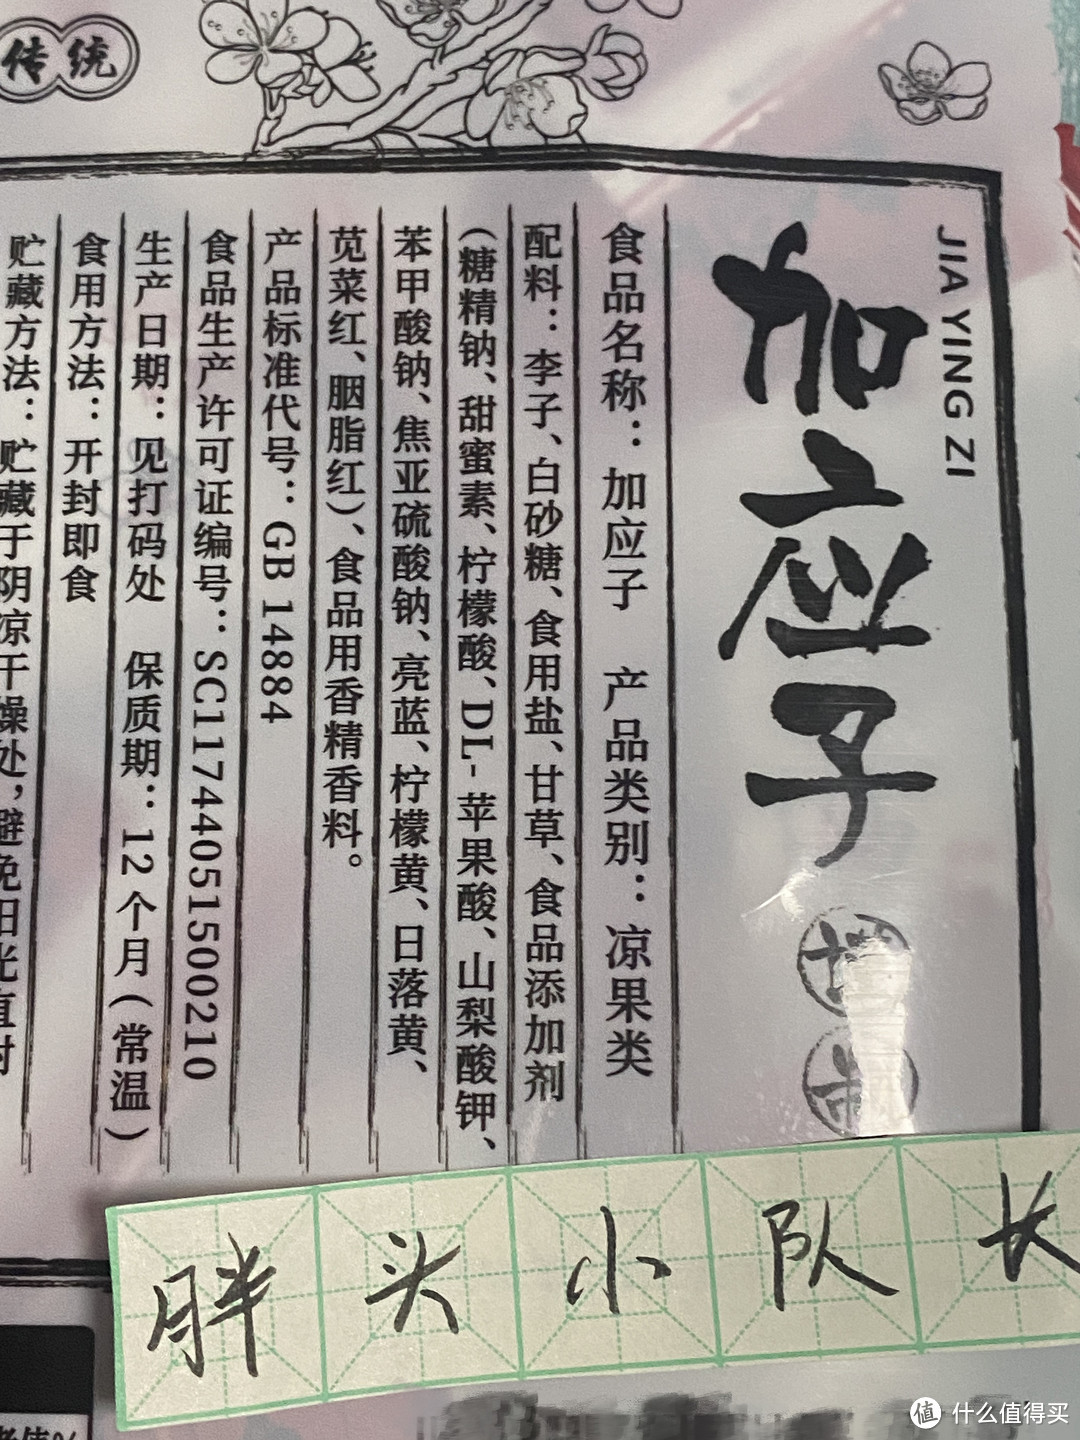 传统
JIA YING ZI
加应子
食品名称：加应子 产品类别：凉果类
配料：李子、白砂糖、食用盐、甘草、食品添加剂
（糖精钠、甜蜜素、柠檬酸、DL-苹果酸、山梨酸钾、
苯甲酸钠、焦亚硫酸钠、亮蓝、柠檬黄、日落黄、
苋菜红、胭脂红）、食品用香精香料。
产品标准代号：GB 14884
食品生产许可证编号：SC11744051500210
生产日期：见打码处 保质期：12个月（常温）
食用方法：开封即食
贮藏方法：贮藏于阴凉干燥处，避免阳光直射
胖头小队长
值 什么值得买